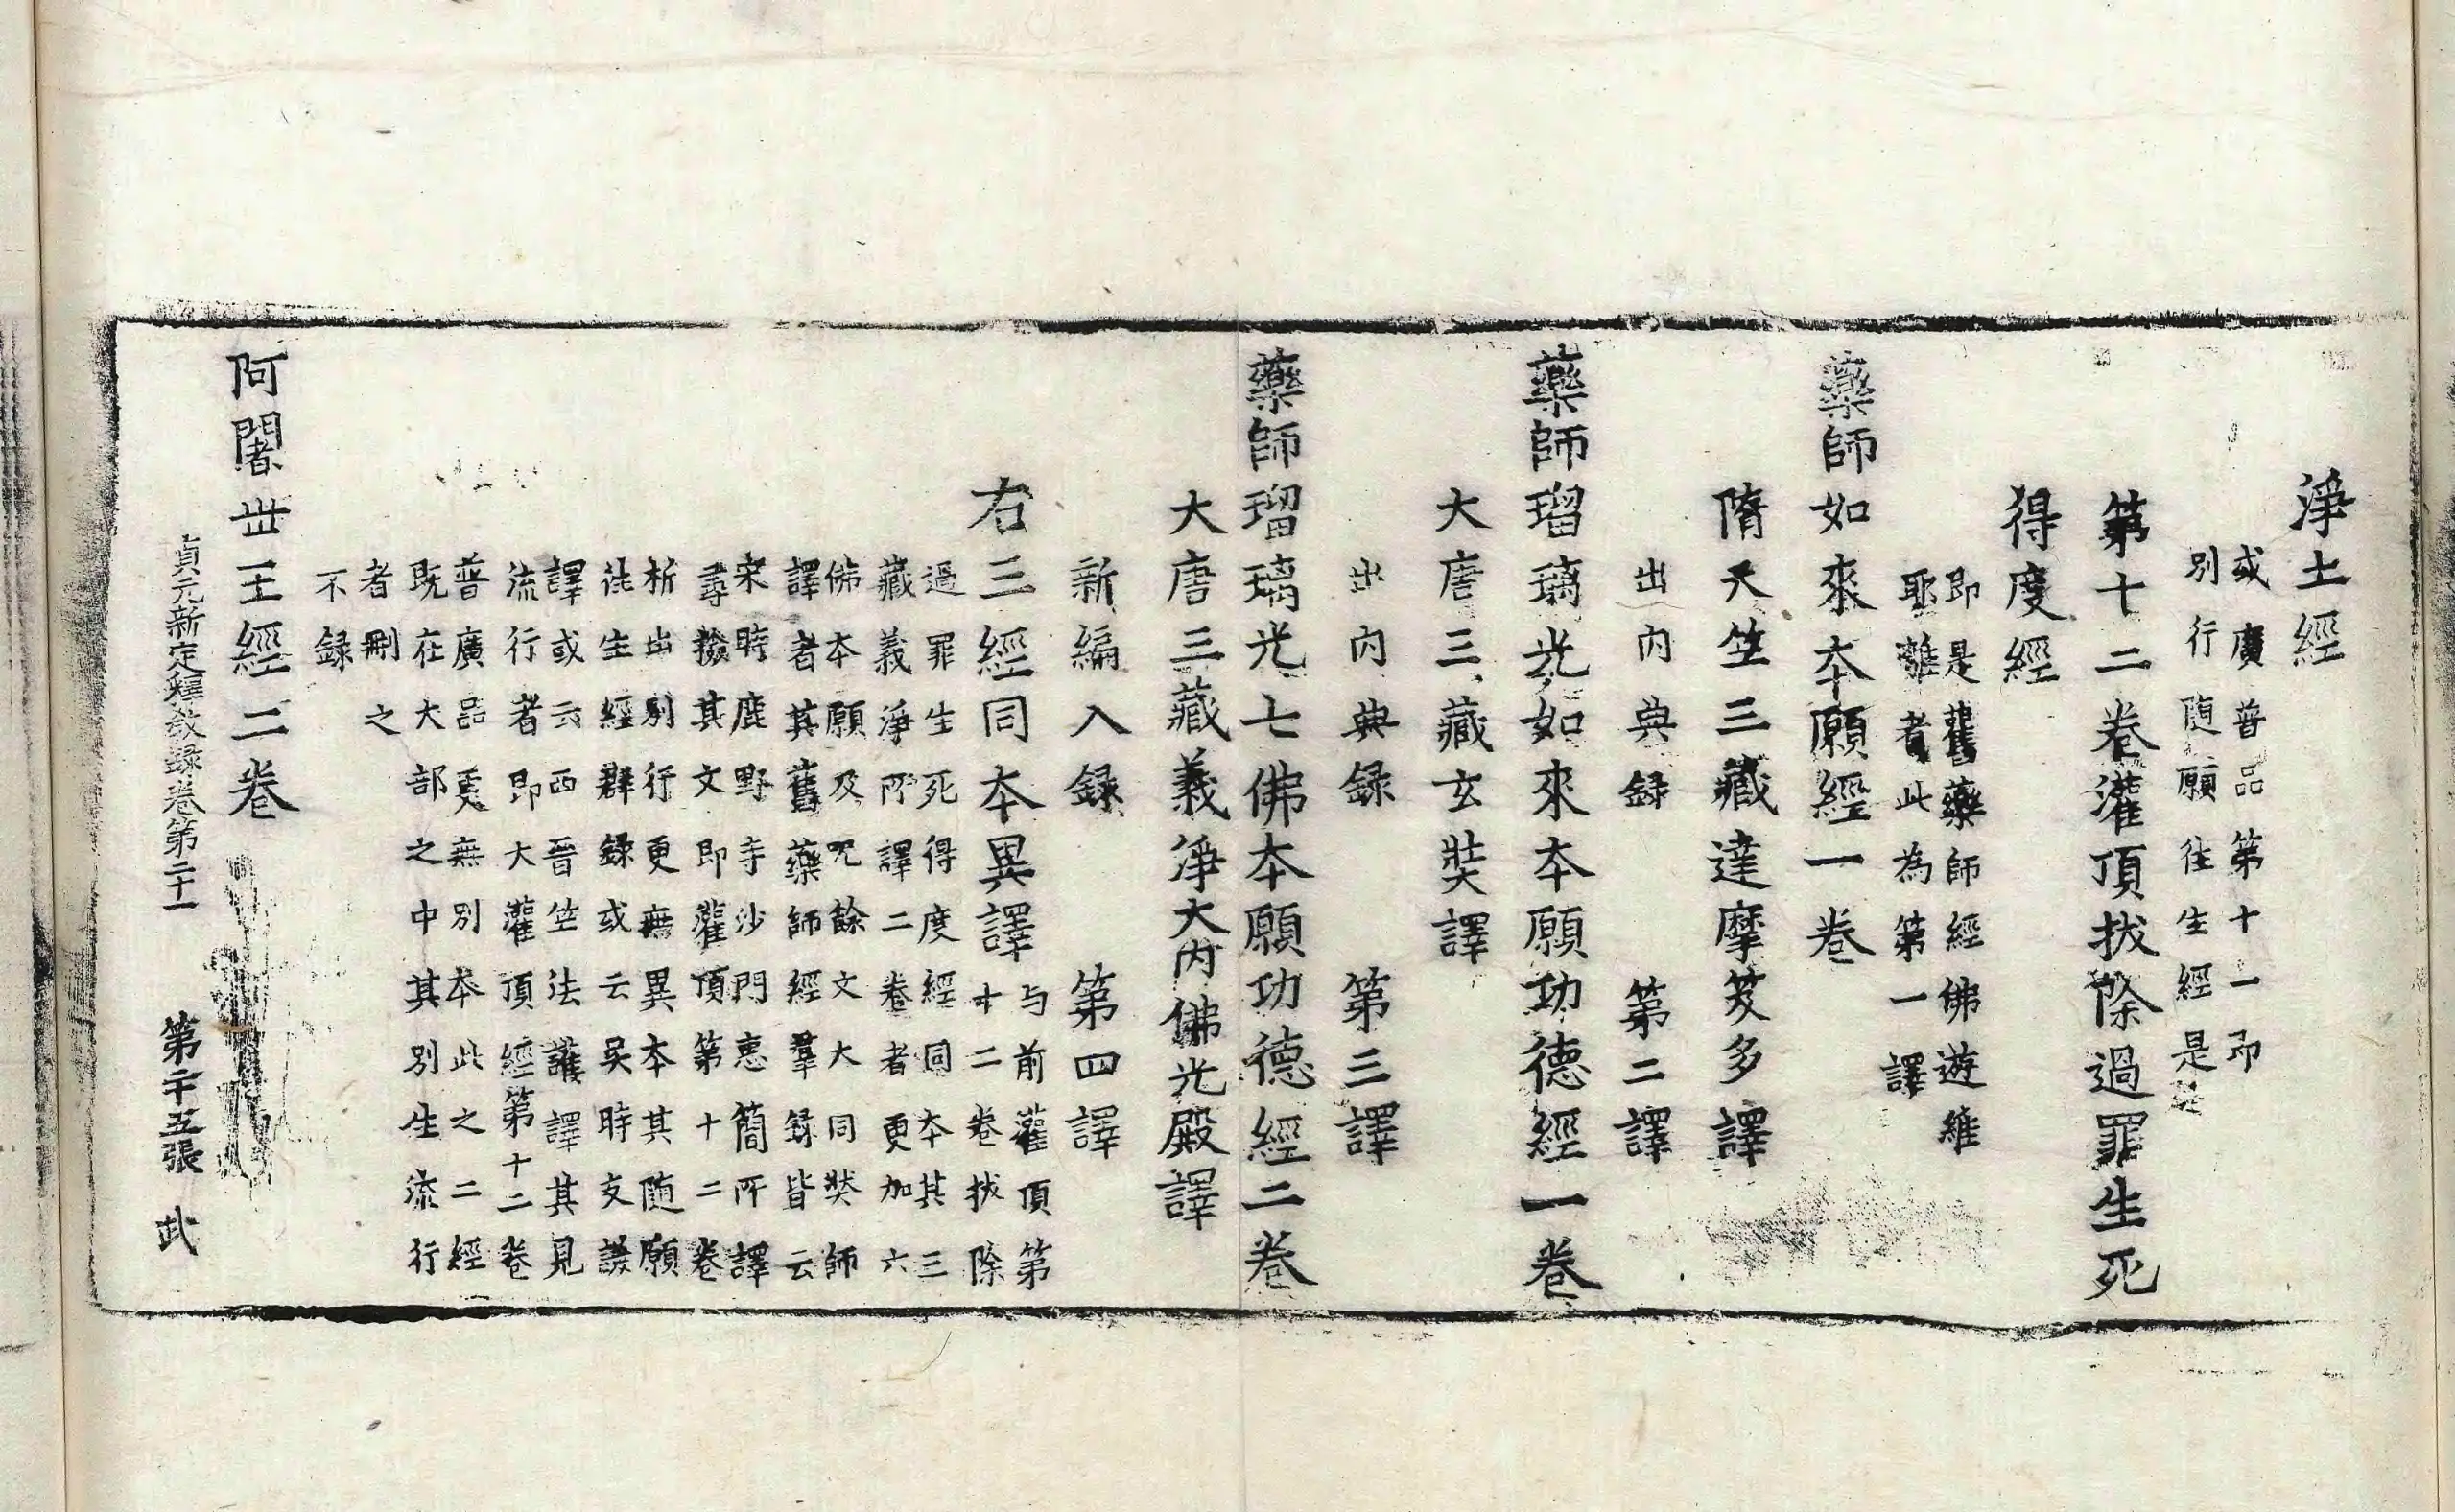 淨土經
或廣普品第十一即
別行隨願往生經是
第十二卷灌頂拔除過罪生死
得度經
即是舊藥師經佛遊維
耶離者此為第一譯
藥師如來本願經一卷
隋天竺三藏達摩笈多譯
出內典録 第二譯
藥師瑠璃光如來本願功德經一卷
大唐三藏玄奘譯
出內典録 第三譯
藥師瑠璃光七佛本願功德經二卷
大唐三藏義淨大內佛光殿譯
新編入録 第四譯
右三經同本異譯
与前灌頂第
十二卷拔除
過罪生死得度經同本其三
藏義淨所譯二卷者更加六
佛本願及呪餘文大同奘師
譯者其舊藥師經羣録皆云
宋時鹿野寺沙門惠簡所譯
尋撿其文即灌頂第十二卷
析出別行更無異本其隨願
往生經群録或云吴時支謙
譯或云西晉竺法護譯其見
流行者即大灌頂經第十二卷
普廣品更無別本此之二經
既在大部之中其別生流行
者刪之
不録
阿闍丗王經二卷
貞元新定釋教録卷第二十一 第二十五張 武